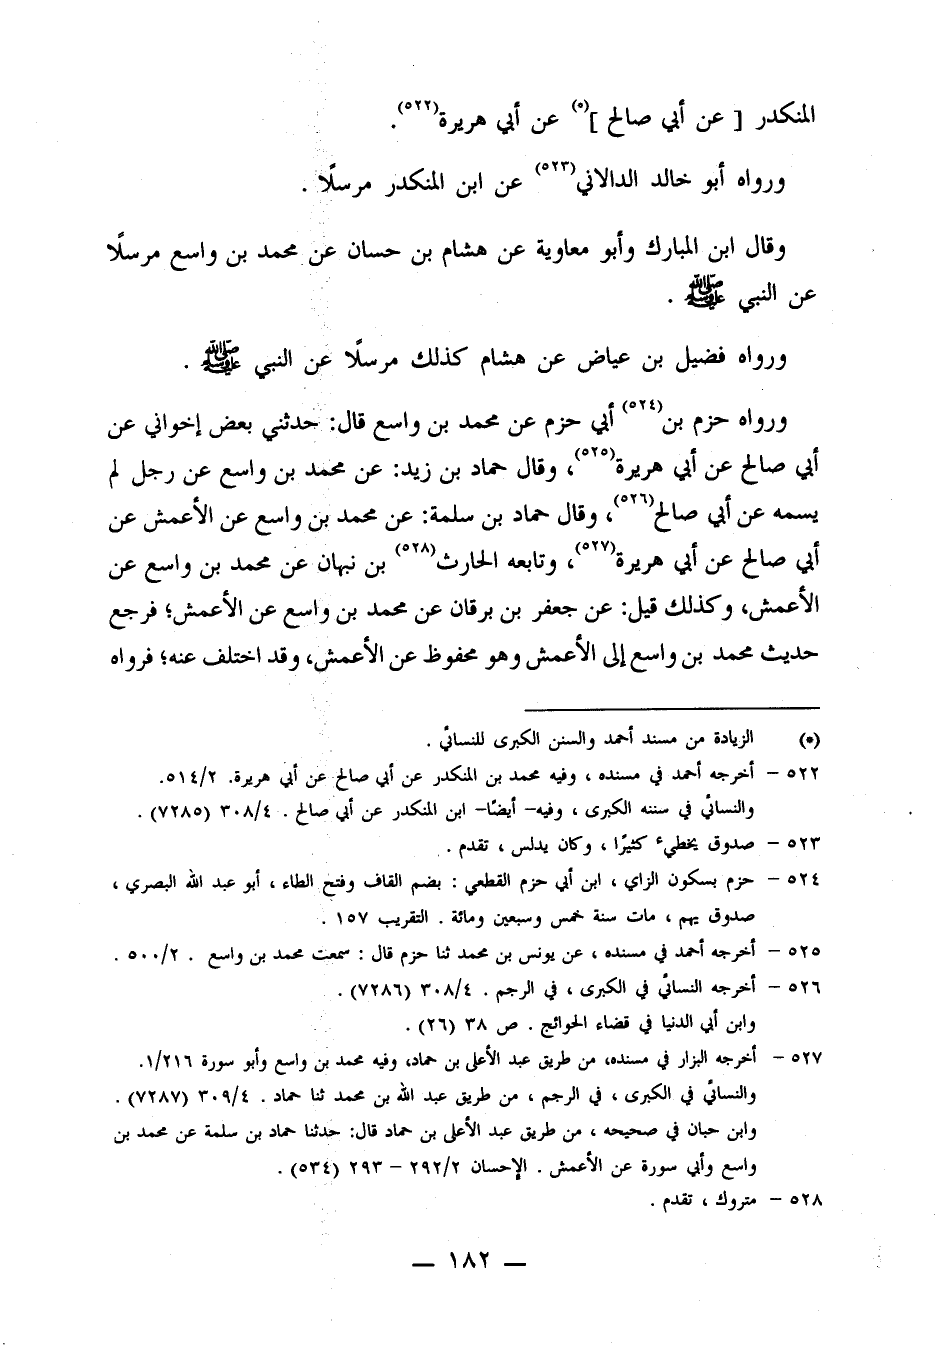 المنكدر [ عن أبي صالح ](*) عن أبي هريرة(٥٢٢).
ورواه أبو خالد الدالاني(٥٢٣) عن ابن المنكدر مرسلًا .
وقال ابن المبارك وأبو معاوية عن هشام بن حسان عن محمد بن واسع مرسلًا
عن النبي ﷺ .
ورواه فضيل بن عياض عن هشام كذلك مرسلًا عن النبي ﷺ .
ورواه حزم بن(٥٢٤) أبي حزم عن محمد بن واسع قال: حدثني بعض إخواني عن
أبي صالح عن أبي هريرة(٥٢٥)، وقال حماد بن زيد: عن محمد بن واسع عن رجل لم
يسمه عن أبي صالح(٥٢٦)، وقال حماد بن سلمة: عن محمد بن واسع عن الأعمش عن
أبي صالح عن أبي هريرة(٥٢٧)، وتابعه الحارث(٥٢٨) بن نبهان عن محمد بن واسع عن
الأعمش، وكذلك قيل: عن جعفر بن برقان عن محمد بن واسع عن الأعمش؛ فرجع
حديث محمد بن واسع إلى الأعمش وهو محفوظ عن الأعمش، وقد اختلف عنه؛ فرواه
(*) الزيادة من مسند أحمد والسنن الكبرى للنسائي .
٥٢٢ – أخرجه أحمد في مسنده ، وفيه محمد بن المنكدر عن أبي صالح عن أبي هريرة. ٥١٤/٢.
والنسائي في سننه الكبرى ، وفيه– أيضًا– ابن المنكدر عن أبي صالح . ٣٠٨/٤ (٧٢٨٥) .
٥٢٣ – صدوق يخطيء كثيرًا ، وكان يدلس ، تقدم .
٥٢٤ – حزم بسكون الزاي ، ابن أبي حزم القطعي : بضم القاف وفتح الطاء ، أبو عبد الله البصري ،
صدوق يهم ، مات سنة خمس وسبعين ومائة . التقريب ١٥٧ .
٥٢٥ – أخرجه أحمد في مسنده ، عن يونس بن محمد ثنا حزم قال : سمعت محمد بن واسع . ٥٠٠/٢ .
٥٢٦ – أخرجه النسائي في الكبرى ، في الرجم . ٣٠٨/٤ (٧٢٨٦) .
وابن أبي الدنيا في قضاء الحوائج . ص ٣٨ (٢٦) .
٥٢٧ – أخرجه البزار في مسنده، من طريق عبد الأعلى بن حماد، وفيه محمد بن واسع وأبو سورة ١/٢١٦.
والنسائي في الكبرى ، في الرجم ، من طريق عبد الله بن محمد ثنا حماد . ٣٠٩/٤ (٧٢٨٧) .
وابن حبان في صحيحه ، من طريق عبد الأعلى بن حماد قال: حدثنا حماد بن سلمة عن محمد بن
واسع وأبي سورة عن الأعمش . الإحسان ٢٩٢/٢ – ٢٩٣ (٥٣٤) .
٥٢٨ – متروك ، تقدم .
— ١٨٢ —